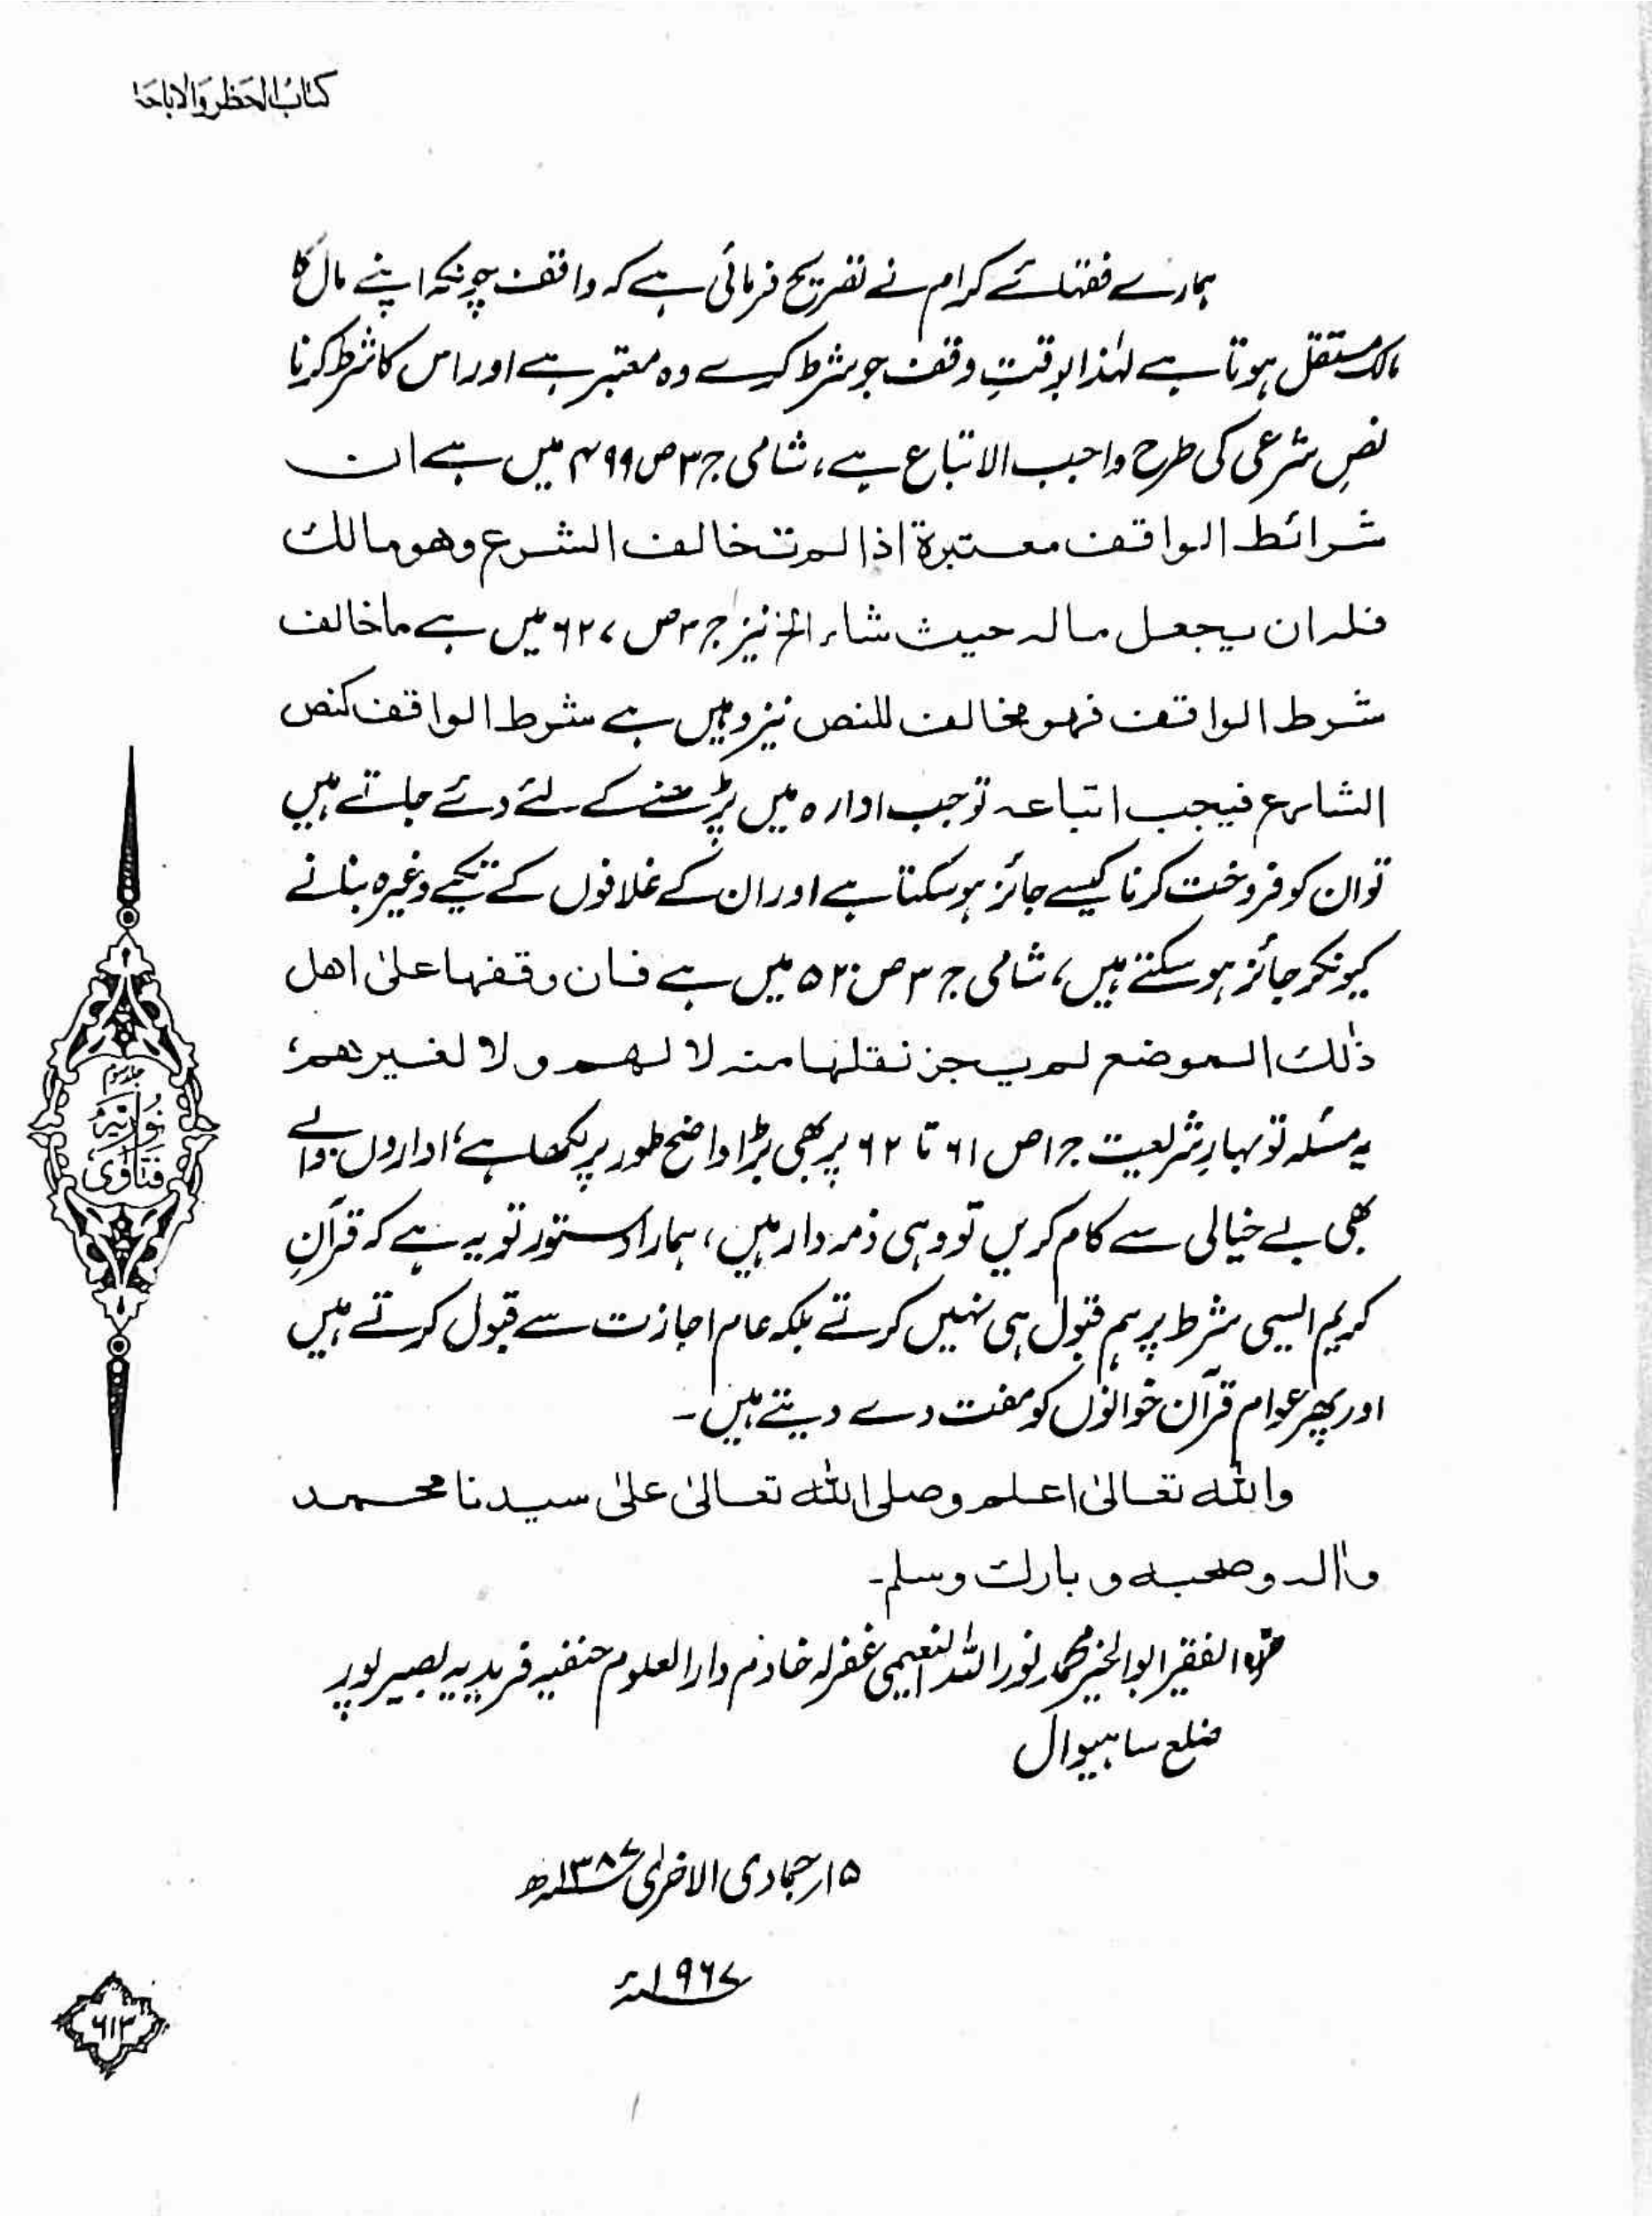 کتاب الحظر والاباحۃ
ہمارے فقہائے کرام نے تصریح فرمائی ہے کہ واقف چونکہ اپنے مال کا
مالک مستقل ہوتا ہے لہٰذا بوقتِ وقف جو شرط کرے وہ معتبر ہے اور اس کا شرط کرنا
نصِ شرعی کی طرح واجب الاتباع ہے، شامی ج ۳ ص ۴۹۹ میں ہے ان
شرائط الواقف معتبرة اذا لم تخالف الشرع وهو مالك
فله ان يجعل ماله حيث شاء الخ نیز ج ۳ ص ۶۲۷ میں ہے ما خالف
شرط الواقف فهو مخالف للنص نیز وہیں ہے شرط الواقف كنص
الشارع فيجب اتباعه تو جب ادارہ میں پڑھنے کے لئے دئے جاتے ہیں
تو ان کو فروخت کرنا کیسے جائز ہو سکتا ہے اور ان کے غلافوں کے تکیے وغیرہ بنانے
کیونکر جائز ہو سکتے ہیں، شامی ج ۳ ص ۵۲۰ میں ہے فان وقفها على اهل
ذٰلك الموضع لم يجز نقلها منه لا لهم ولا لغيرهم،
یہ مسئلہ تو بہارِ شریعت ج ۱۰ ص ۶۱ تا ۶۲ پر بھی بڑا واضح طور پر لکھا ہے، اداروں والے
بھی بے خیالی سے کام کریں تو وہی ذمہ دار ہیں، ہمارا دستور تو یہ ہے کہ قرآنِ
کریم ایسی شرط پر ہم قبول ہی نہیں کرتے بلکہ عام اجازت سے قبول کرتے ہیں
اور پھر عوام قرآن خوانوں کو مفت دے دیتے ہیں۔
والله تعالىٰ اعلم وصلى الله تعالىٰ علىٰ سيدنا محمد
واٰله وصحبه وبارك وسلم۔
حررہ الفقیر ابوالخیر محمد نور اللہ النعیمی غفرلہ خادم دارالعلوم حنفیہ فریدیہ بصیر پور
ضلع ساہیوال
۱۵ جمادی الاخرٰی ۱۳۸۷ھ
۱۹۶۷ء
جلد سوم
نوریہ
فتاویٰ
۶۱۳